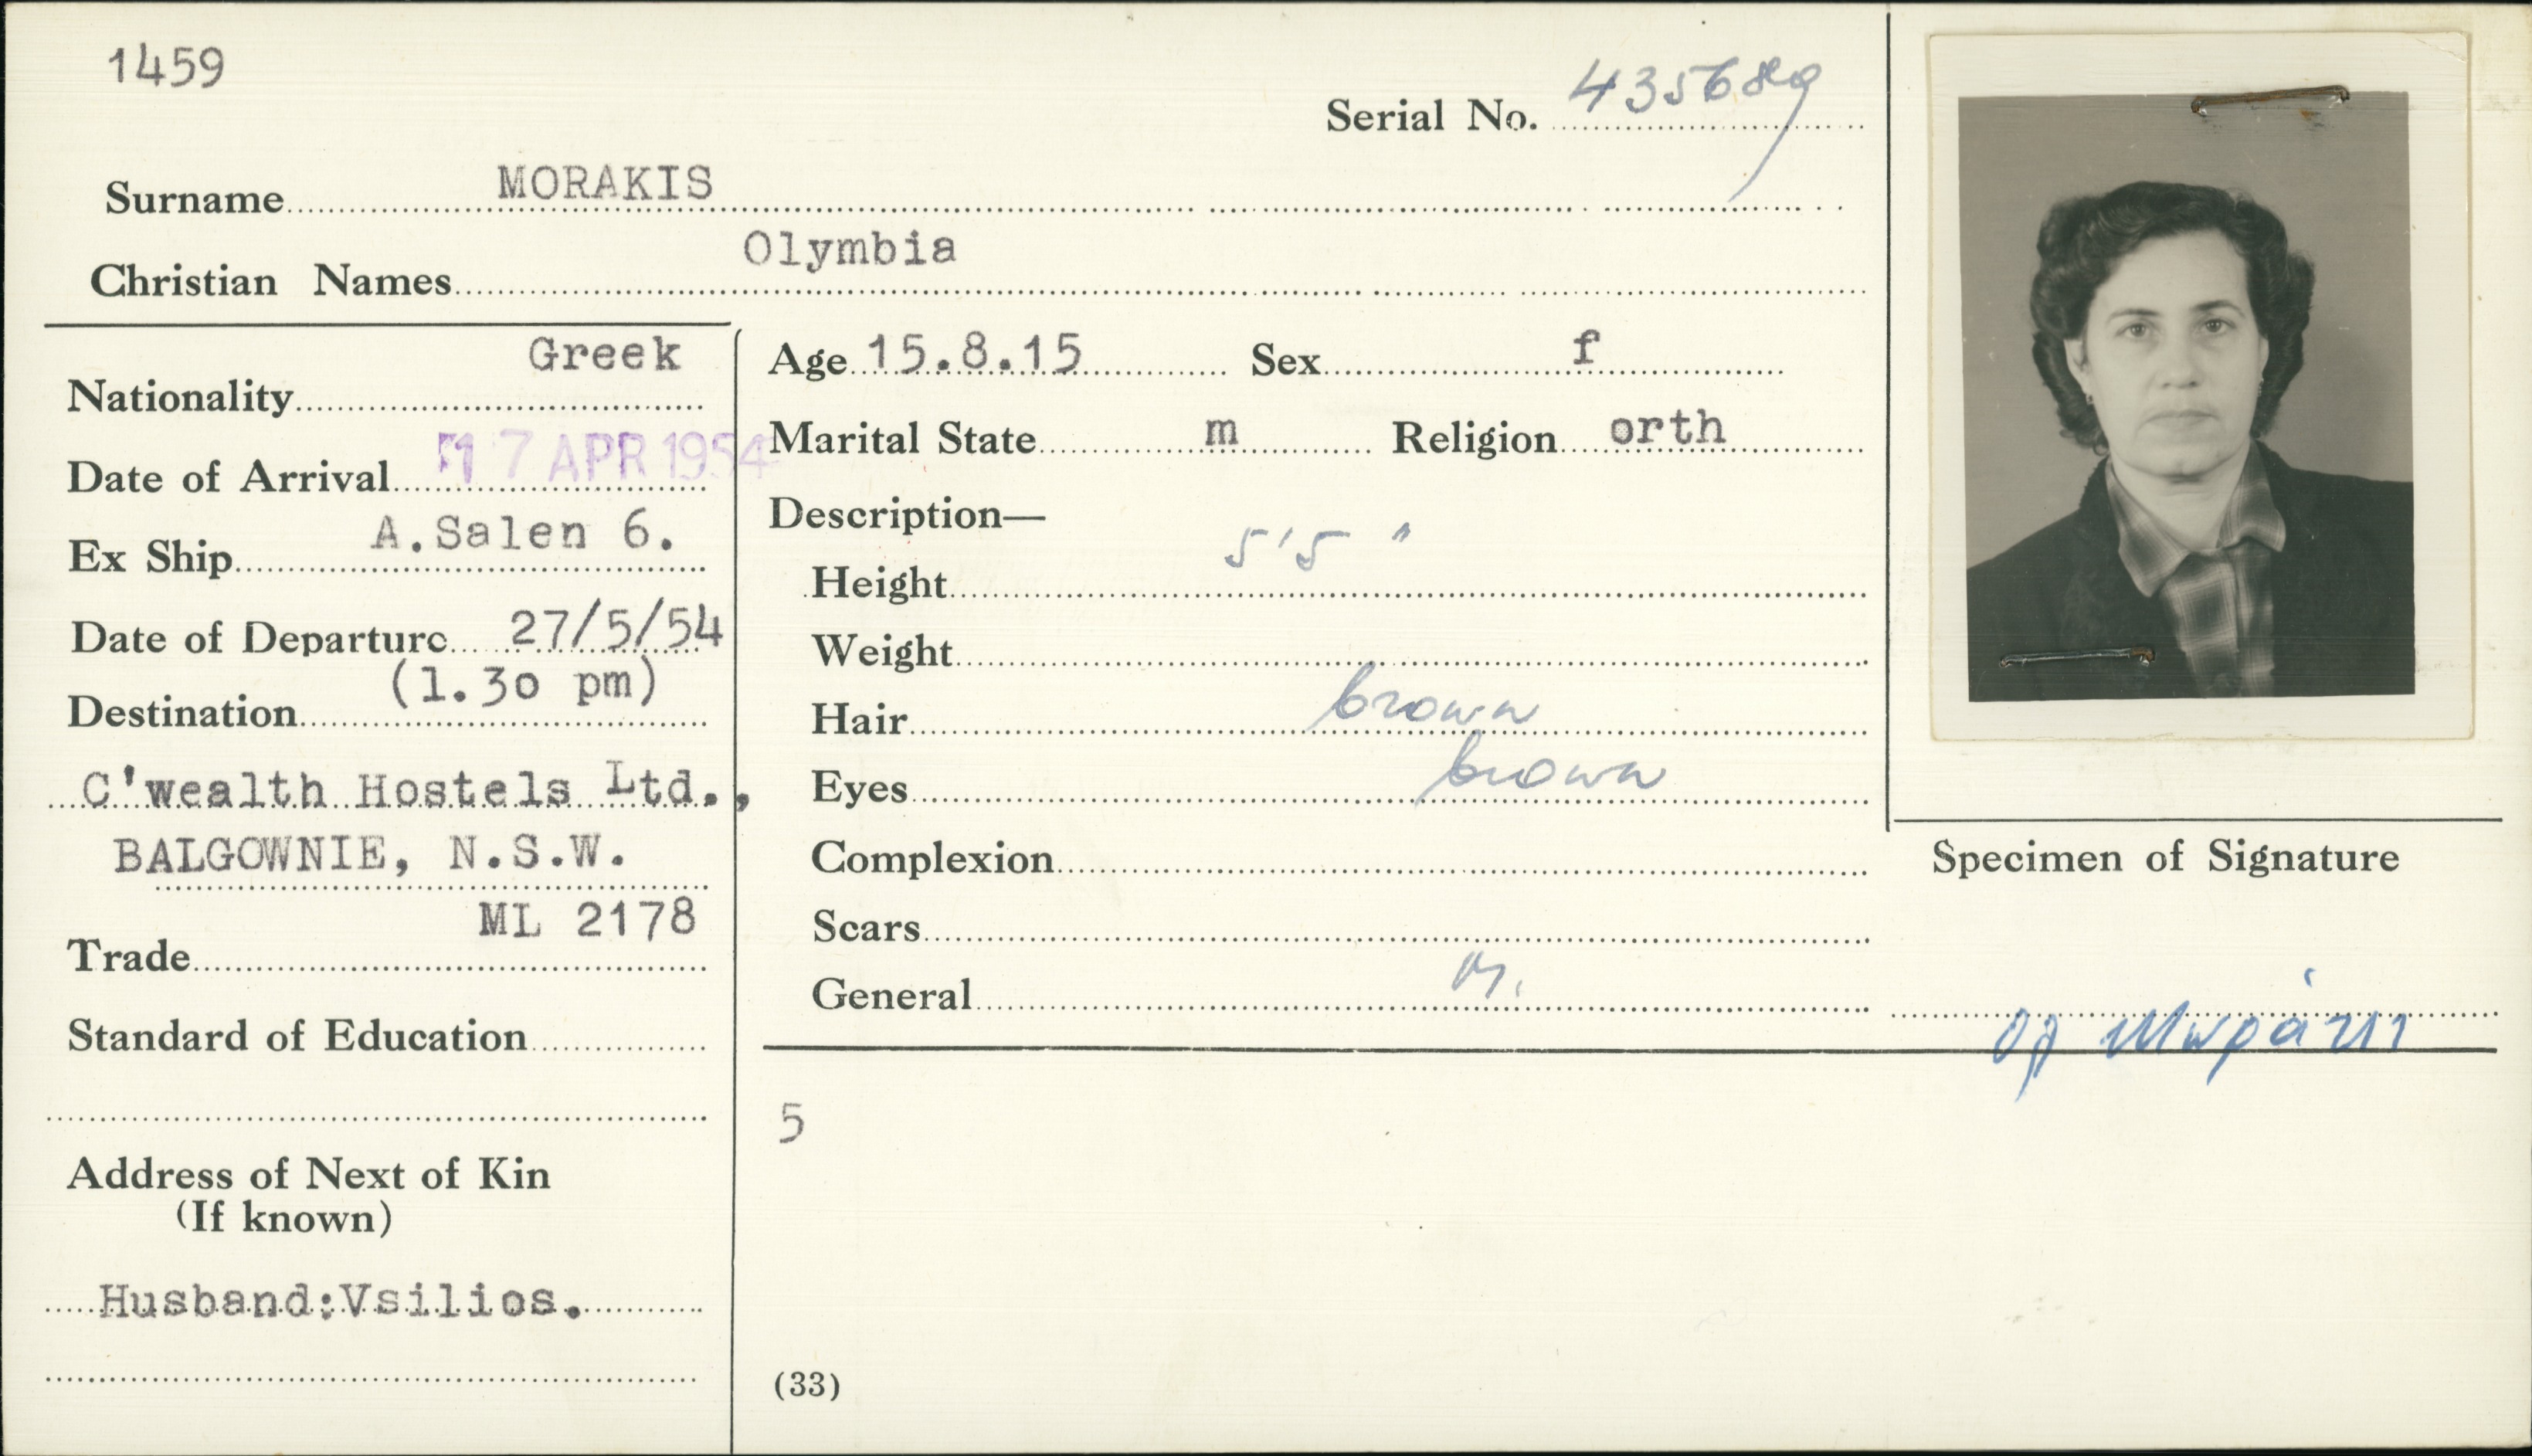 1459
Serial No. 435689
Surname MORAKIS
Christian Names Olymbia
Nationality Greek
Date of Arrival 17 APR 1954
Ex Ship A.Salen 6.
Date of Departure 27/5/54
(1.30 pm)
Destination
C'wealth Hostels Ltd.,
BALGOWNIE, N.S.W.
ML 2178
Trade
Standard of Education
Address of Next of Kin
(If known)
Husband:Vsilios.
Age 15.8.15 Sex f
Marital State m Religion orth
Description—
Height 5'5"
Weight
Hair brown
Eyes brown
Complexion
Scars
General
5
(33)
Specimen of Signature
Ολ Μωράκη